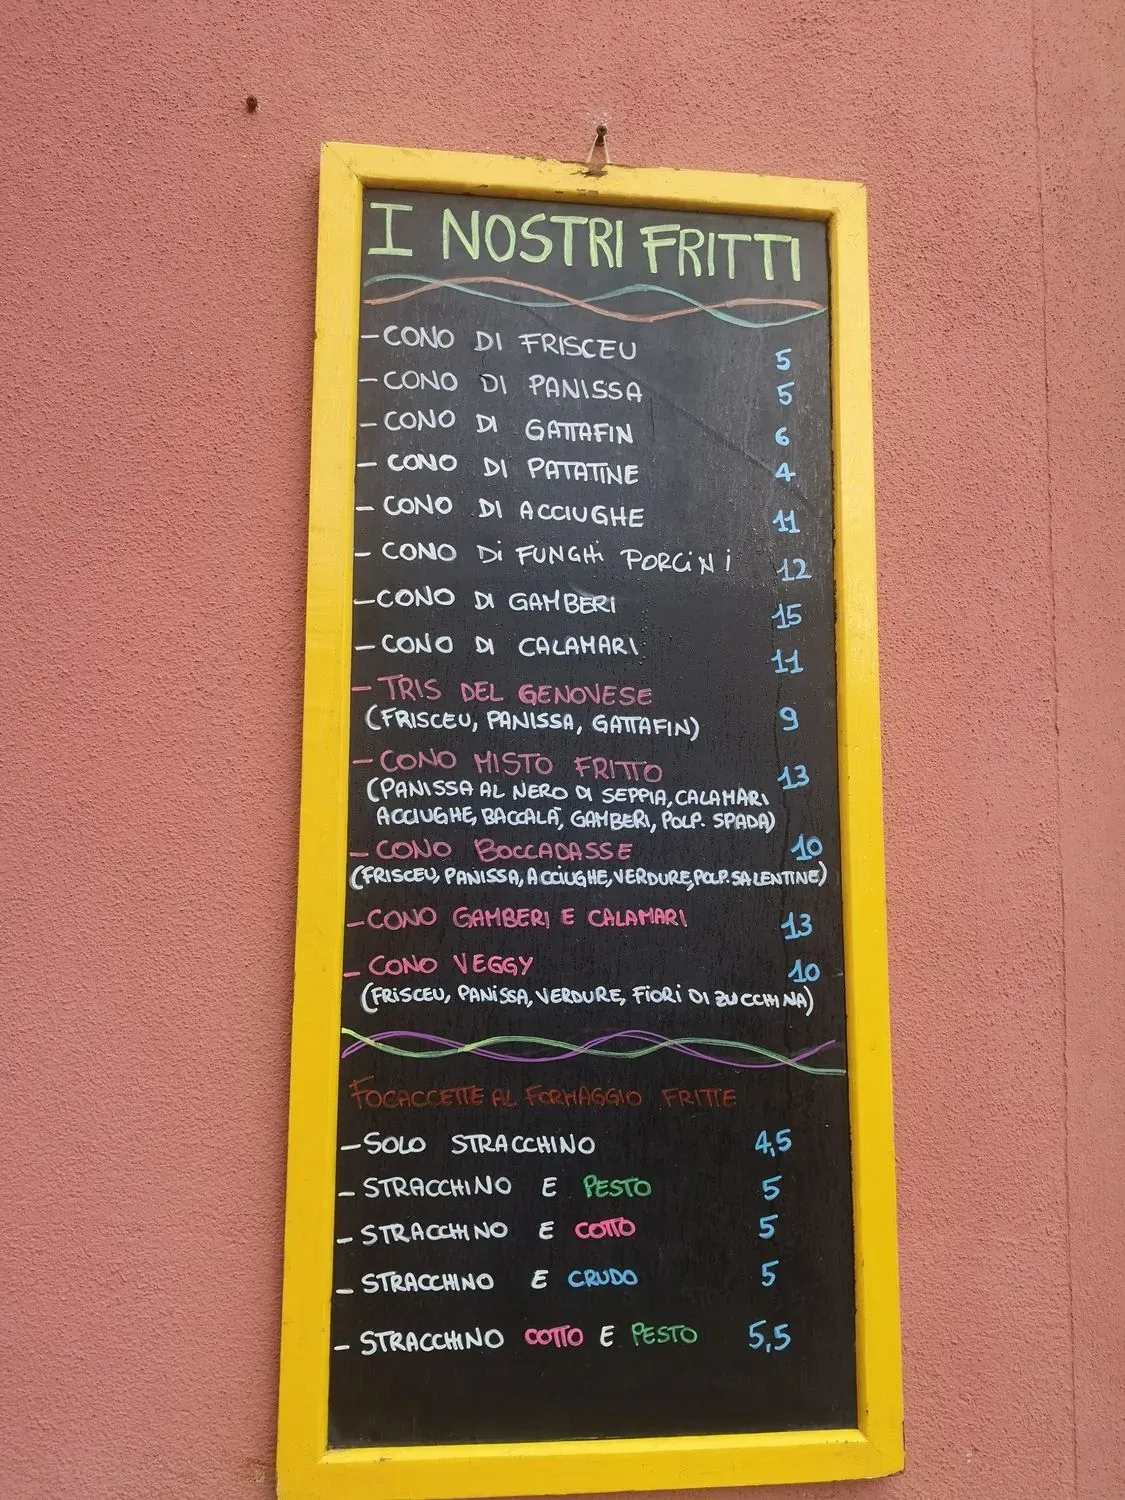 I NOSTRI FRITTI
- CONO DI FRISCEU 5
- CONO DI PANISSA 5
- CONO DI GATTAFIN 6
- CONO DI PATATINE 4
- CONO DI ACCIUGHE 11
- CONO Di FUNGHi PORCiNi 12
- CONO DI GAMBERI 15
- CONO DI CALAMARI 11
- TRIS DEL GENOVESE
(FRISCEU, PANISSA, GATTAFIN) 9
- CONO MISTO FRITTO 13
(PANISSA AL NERO DI SEPPIA, CALAMARI
ACCIUGHE, BACCALÀ, GAMBERI, POLP. SPADA)
- CONO BOCCADASSE 10
(FRISCEU, PANISSA, ACCIUGHE, VERDURE, POLP. SALENTINE)
- CONO GAMBERI E CALAMARI 13
- CONO VEGGY 10
(FRiSCEU, PANiSSA, VERDURE, FiORi DI ZUCCHINA)
FOCACCETTE AL FORMAGGIO FRITTE
- SOLO STRACCHINO 4,5
- STRACCHINO E PESTO 5
- STRACCHINO E COTTO 5
- STRACCHINO E CRUDO 5
- STRACCHINO COTTO E PESTO 5,5